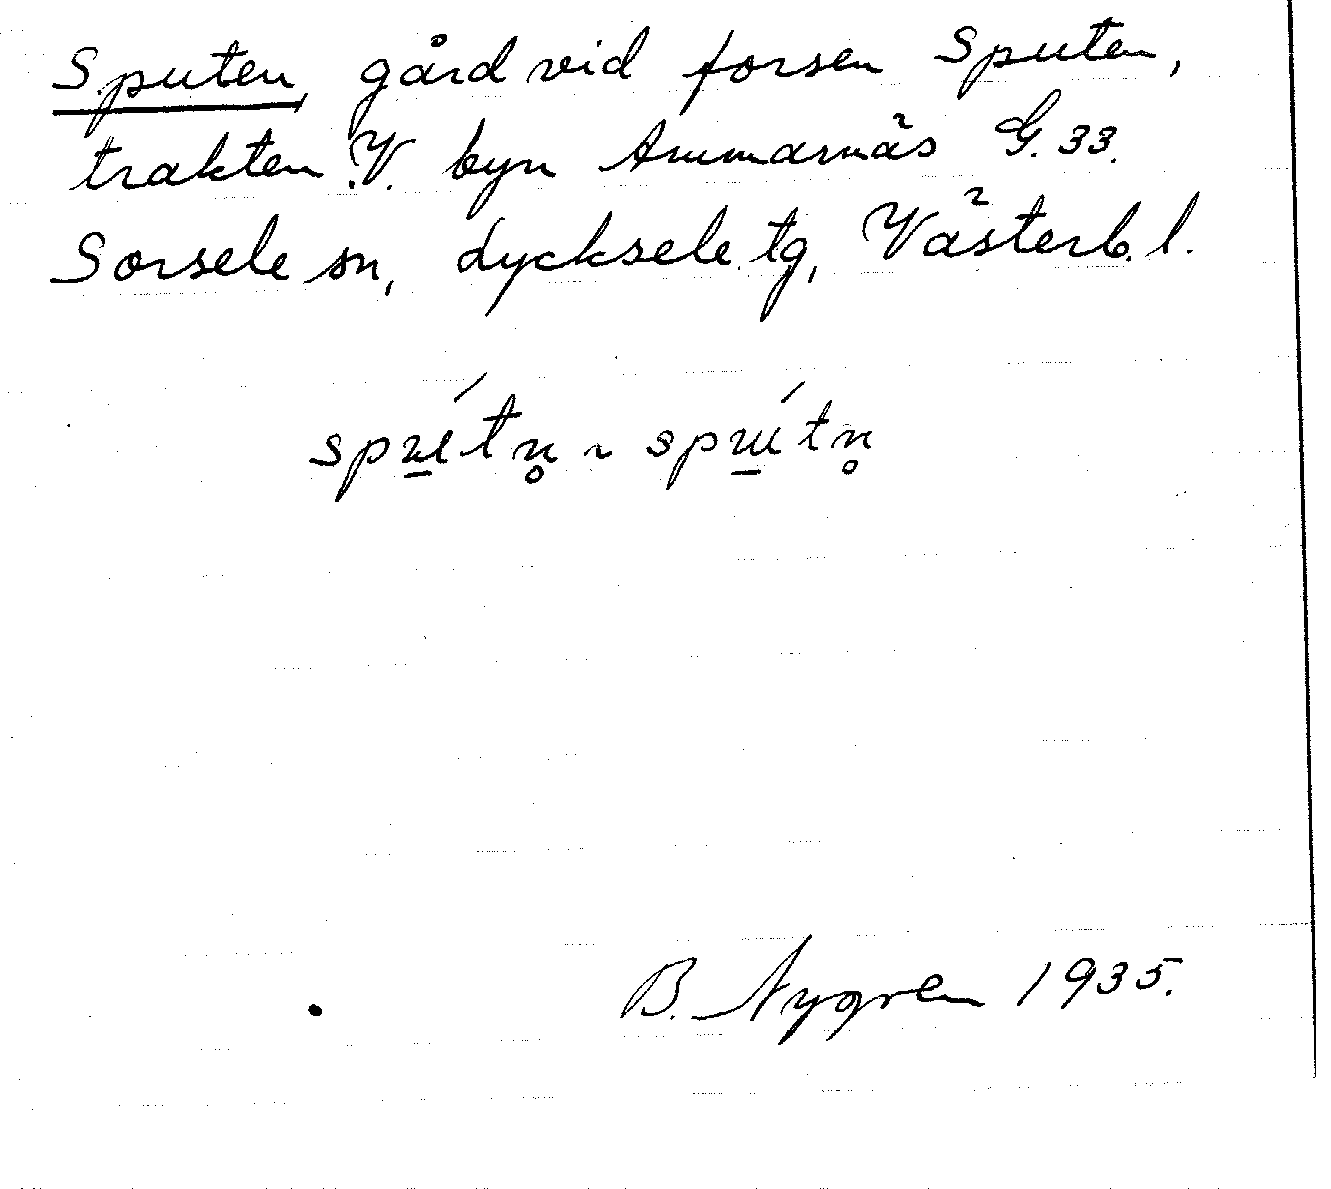 Sputen, gård vid forsen Sputen,
trakten V. byn Ammarnäs G. 33.
Sorsele sn, Lycksele tg, Västerb. l.
B. Nygren 1935.